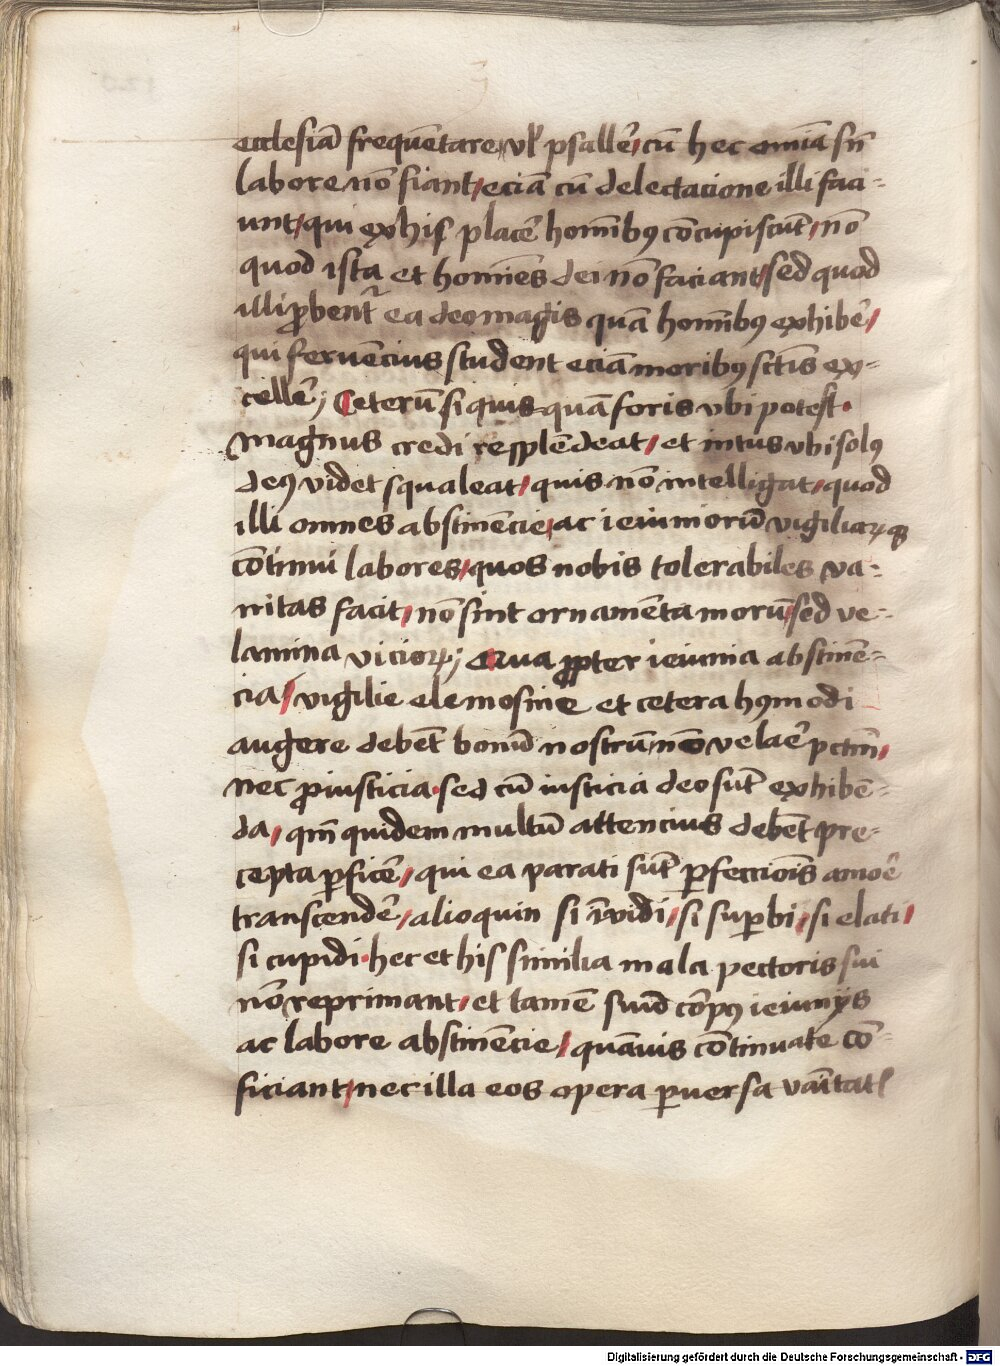 ecclesiā frequētare, vl' psallē, cū hec omnia sn̄
labore nō fiant, eciā cū delectacione illi faci-
unt, qui ex his placē homībus cōcupiscūt, nō
quod ista et homīes dei nō faciant, sed quod
illi ꝓbentᷣ ea deo magis quā homībꝫ exhibē,
qui fervēcius student eciā moribꝫ sctīs ex-
cellē; Ceterū si quis quā foris vbi potest.
magnus credi resplēdeat, et intus vbi solꝰ
deꝰ videt squaleat, quis nō intelligat, quod
illi omnes abstinēcie, ac ieiuniorū vigiliarꝫqꝫ
cōtinui labores, quos nobis tolerabiles va-
nitas facit, nō sint ornamēta morū, sed ve-
lamina vicioꝝ; Qua ꝓpter ieiunia abstinē-
cia, vigilie elemosine et cetera hꝰmodi
augere debēt bonū nostrū, nō velaē pctm̄,
nec ꝓ iusticia. sed cū iusticia deo sūt exhibē-
da, qm̄ quidem multū attencius debēt pre-
cepta ꝑficē, qui ea parati sūt ꝑfeccionis amoē
transcendē, alioquin si īvidi, si suꝑbi, si elati,
si cupidi. hec et his similia mala pectoris sui
nō reprimant, et tamē suū corpꝰ ieiunijs
ac labore abstinēcie, quāvis cōtinuate cō-
ficiant, nec illa eos opera ꝑversa vanitatꝭ
Digitalisierung gefördert durch die Deutsche Forschungsgemeinschaft - DFG